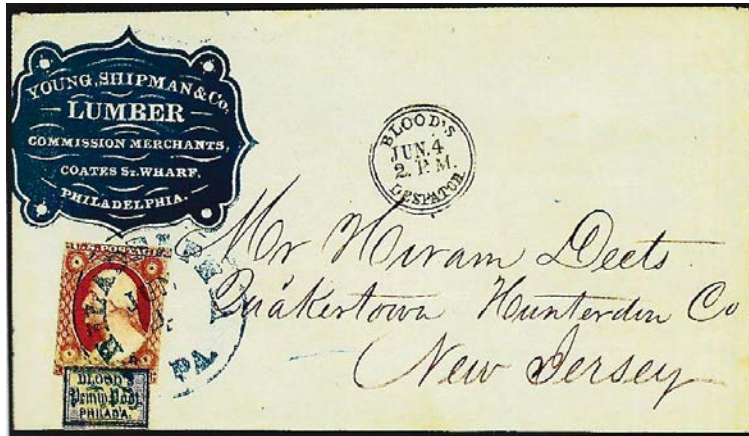 YOUNG, SHIPMAN & Co.
LUMBER
COMMISSION MERCHANTS,
COATES St. WHARF,
PHILADELPHIA.
BLOOD'S
JUN. 4
2. P.M.
DESPATCH
Mr Hiram Deets
Quakertown Hunterdon Co
New Jersey
JUN
PA
BLOOD'S
Penny Post
PHILAD'A.